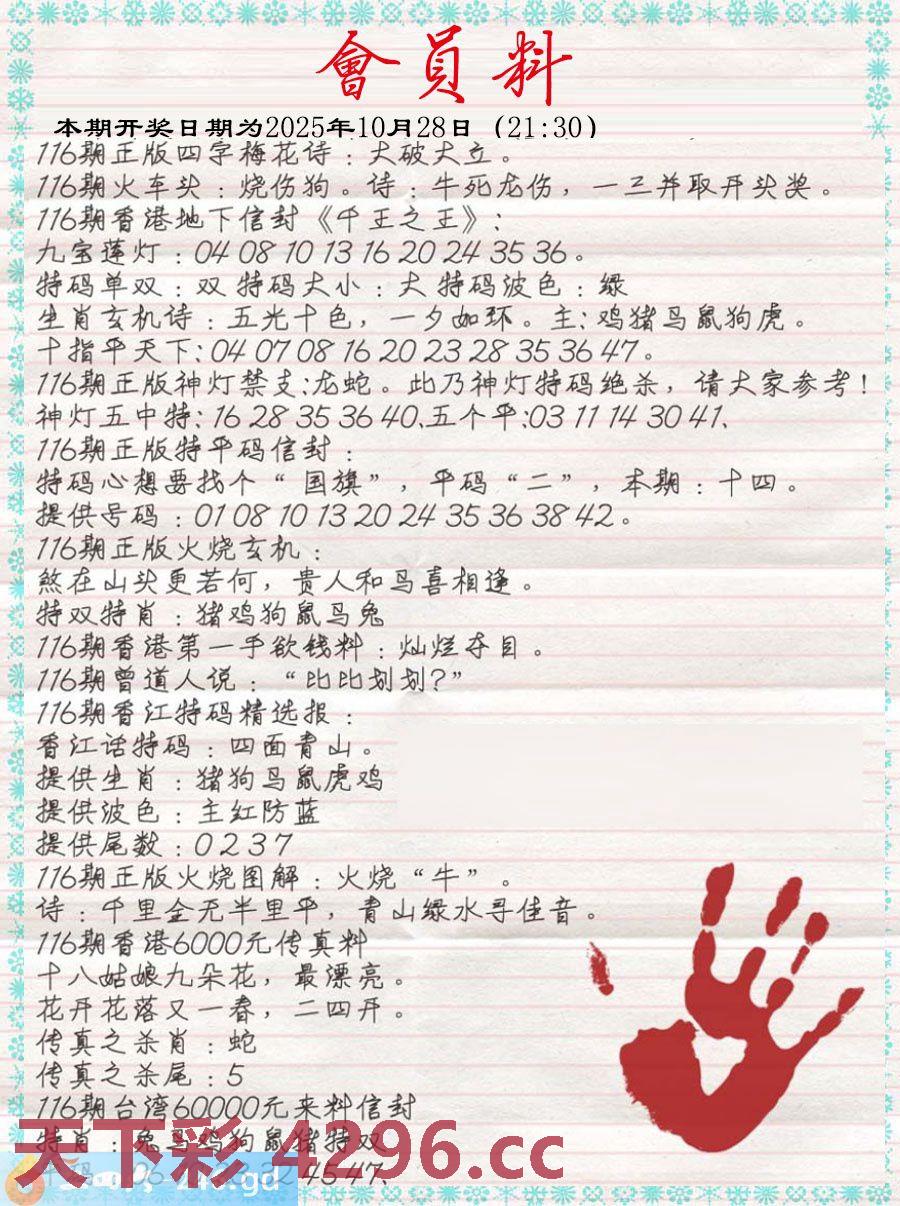 會員料
本期开奖日期为2025年10月28日（21:30）
116期正版四字梅花诗：大破大立。
116期火车头：烧伤狗。诗：牛死龙伤，一三并取开头奖。
116期香港地下信封《千王之王》：
九宝莲灯：04 08 10 13 16 20 24 35 36。
特码单双：双 特码大小：大 特码波色：绿
生肖玄机诗：五光十色，一夕如环。主：鸡猪马鼠狗虎。
十指平天下：04 07 08 16 20 23 28 35 36 47。
116期正版神灯禁支：龙蛇。此乃神灯特码绝杀，请大家参考！
神灯五中特：16 28 35 36 40、五个平：03 11 14 30 41、
116期正版特平码信封：
特码心想要找个“国旗”，平码“二”，本期：十四。
提供号码：01 08 10 13 20 24 35 36 38 42。
116期正版火烧玄机：
煞在山头更若何，贵人和马喜相逢。
特双特肖：猪鸡狗鼠马兔
116期香港第一手欲钱料：灿烂夺目。
116期曾道人说：“比比划划?”
116期香江特码精选报：
香江话特码：四面青山。
提供生肖：猪狗马鼠虎鸡
提供波色：主红防蓝
提供尾数：0 2 3 7
116期正版火烧图解：火烧“牛”。
诗：千里金无半里平，青山绿水寻佳音。
116期香港6000元传真料
十八姑娘九朵花，最漂亮。
花开花落又一春，二四开。
传真之杀肖：蛇
传真之杀尾：5
116期台湾60000元来料信封
特肖：兔马鸡狗鼠猪特双
天下彩4296.cc
45 47、